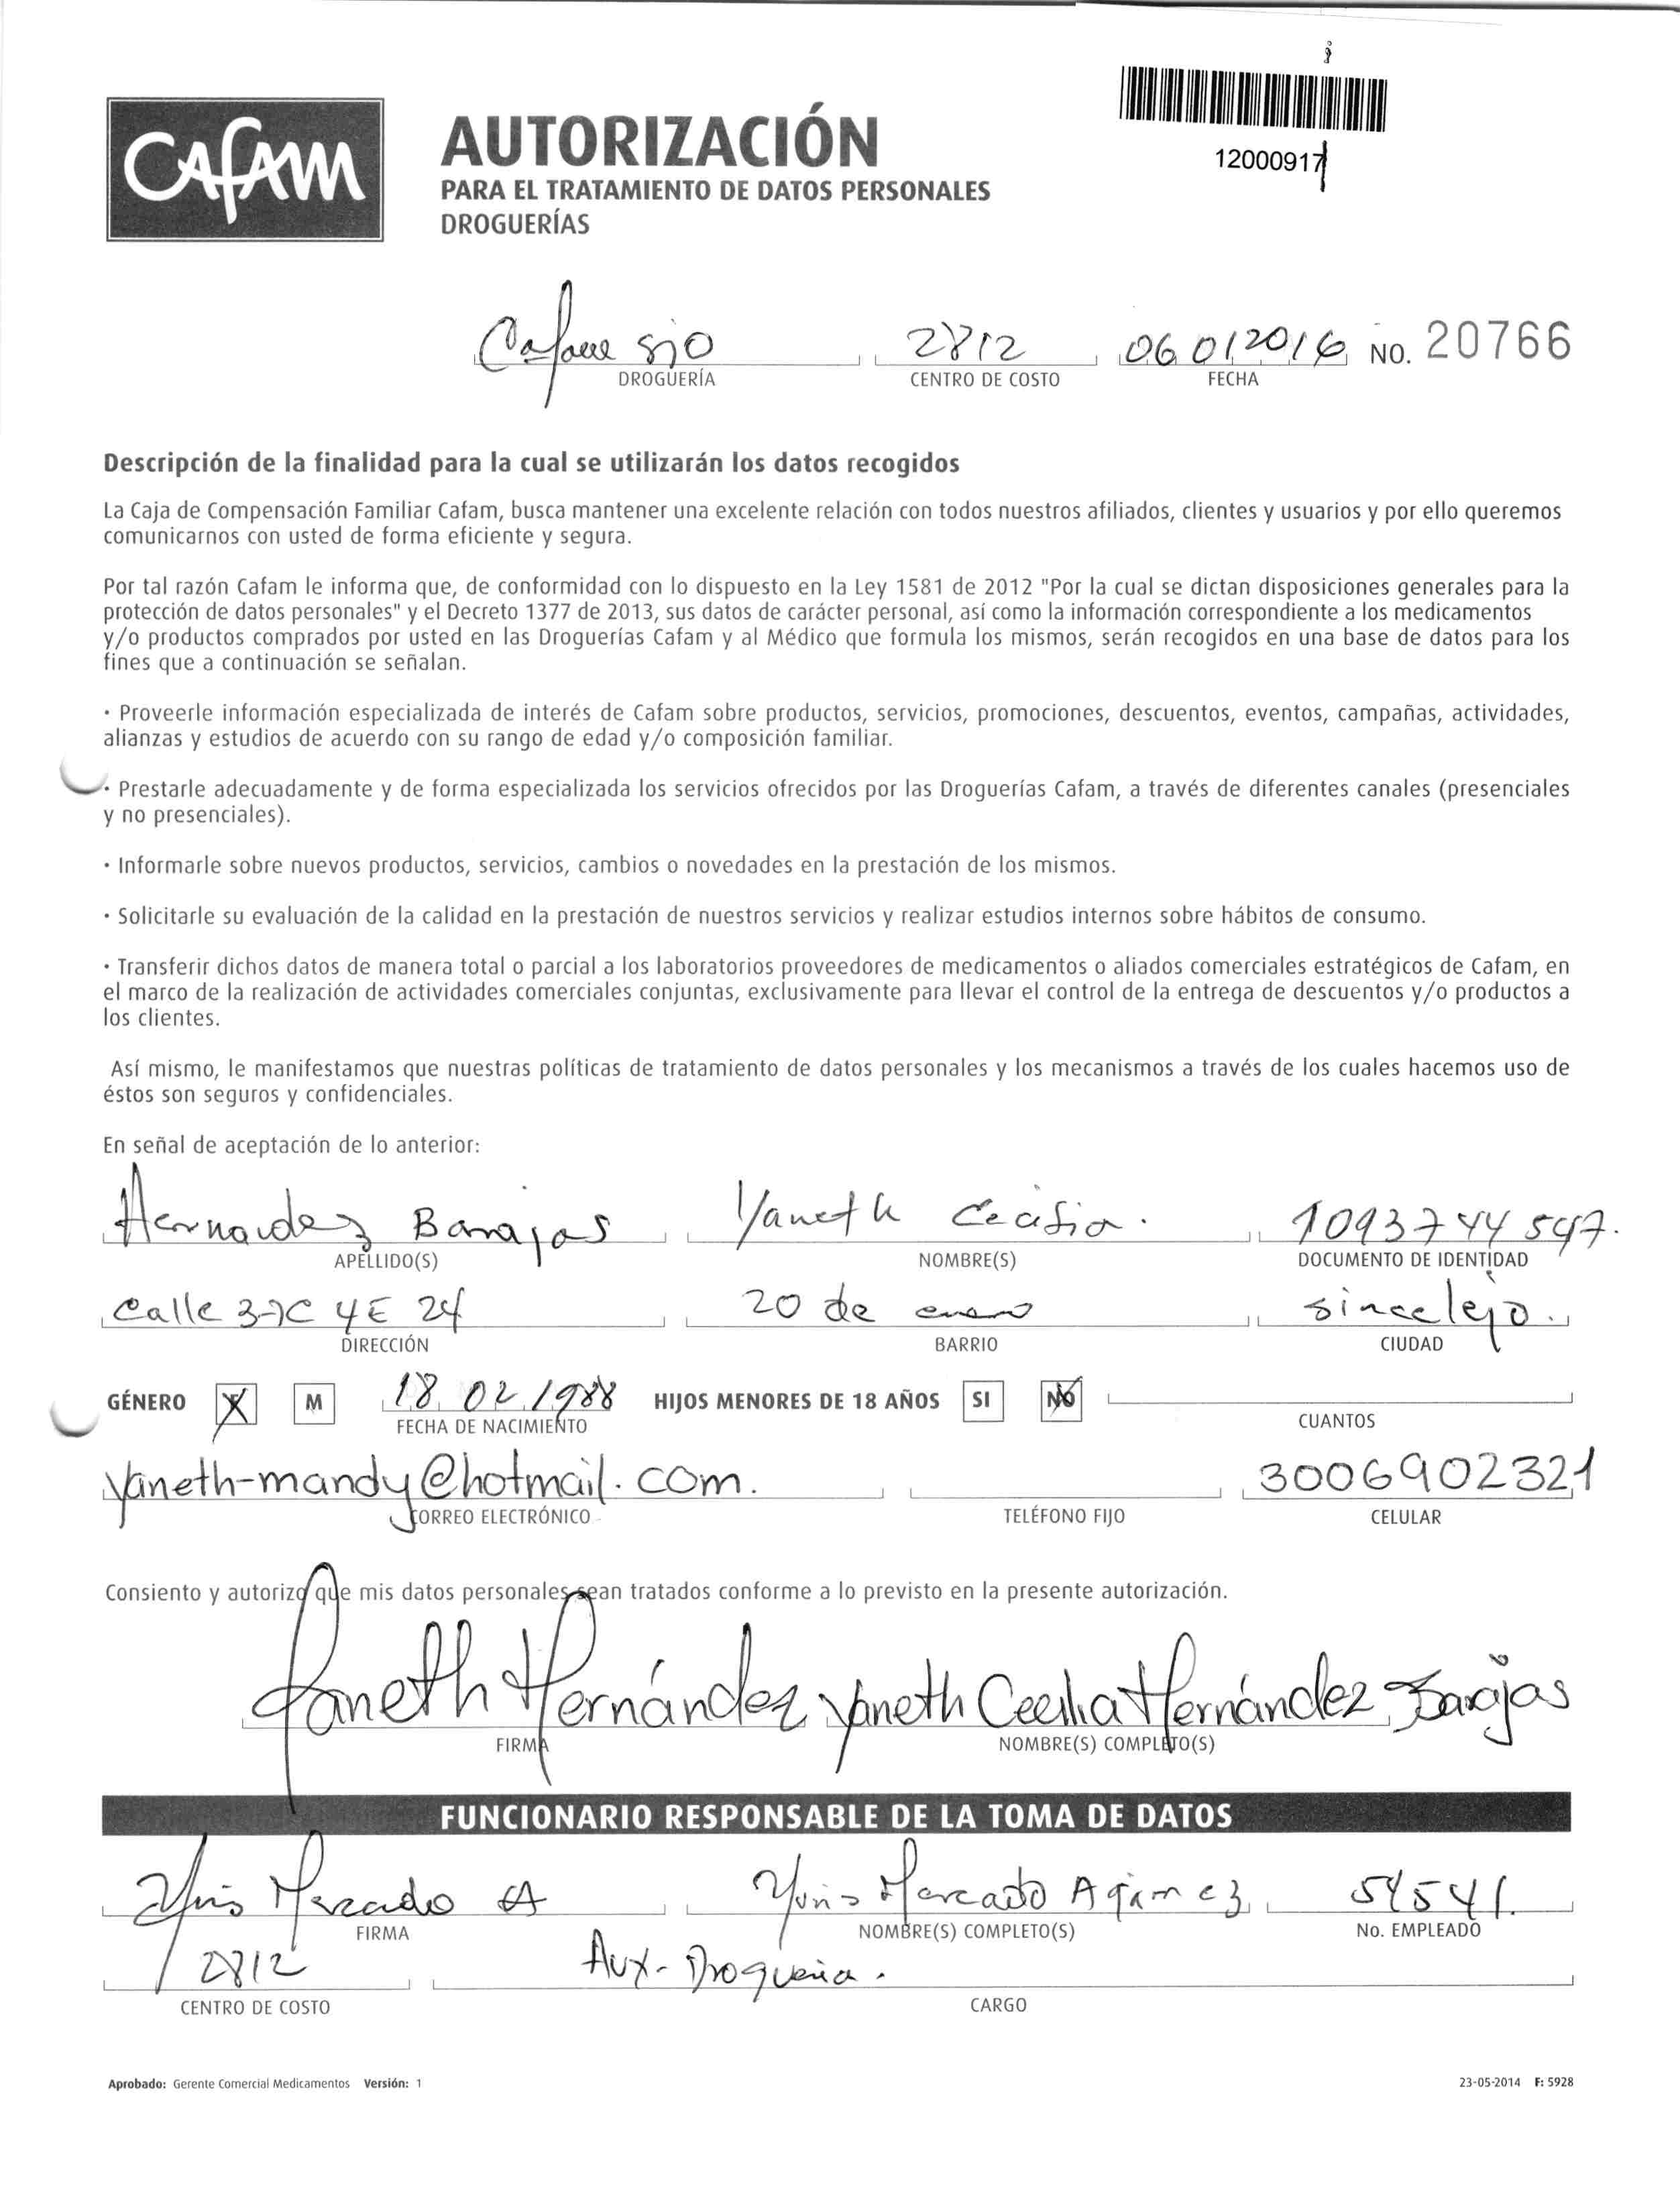 CAFAM
AUTORIZACIÓN
PARA EL TRATAMIENTO DE DATOS PERSONALES
DROGUERÍAS
12000917
Cafam sjo 2812 06 01 2016 NO. 20766
DROGUERÍA CENTRO DE COSTO FECHA
Descripción de la finalidad para la cual se utilizarán los datos recogidos
La Caja de Compensación Familiar Cafam, busca mantener una excelente relación con todos nuestros afiliados, clientes y usuarios y por ello queremos
comunicarnos con usted de forma eficiente y segura.
Por tal razón Cafam le informa que, de conformidad con lo dispuesto en la Ley 1581 de 2012 "Por la cual se dictan disposiciones generales para la
protección de datos personales" y el Decreto 1377 de 2013, sus datos de carácter personal, así como la información correspondiente a los medicamentos
y/o productos comprados por usted en las Droguerías Cafam y al Médico que formula los mismos, serán recogidos en una base de datos para los
fines que a continuación se señalan.
· Proveerle información especializada de interés de Cafam sobre productos, servicios, promociones, descuentos, eventos, campañas, actividades,
alianzas y estudios de acuerdo con su rango de edad y/o composición familiar.
· Prestarle adecuadamente y de forma especializada los servicios ofrecidos por las Droguerías Cafam, a través de diferentes canales (presenciales
y no presenciales).
· Informarle sobre nuevos productos, servicios, cambios o novedades en la prestación de los mismos.
· Solicitarle su evaluación de la calidad en la prestación de nuestros servicios y realizar estudios internos sobre hábitos de consumo.
· Transferir dichos datos de manera total o parcial a los laboratorios proveedores de medicamentos o aliados comerciales estratégicos de Cafam, en
el marco de la realización de actividades comerciales conjuntas, exclusivamente para llevar el control de la entrega de descuentos y/o productos a
los clientes.
Así mismo, le manifestamos que nuestras políticas de tratamiento de datos personales y los mecanismos a través de los cuales hacemos uso de
éstos son seguros y confidenciales.
En señal de aceptación de lo anterior:
Hernandez Barajas Yaneth Cecilia. 1093744597.
APELLIDO(S) NOMBRE(S) DOCUMENTO DE IDENTIDAD
Calle 37C 4E 24 20 de enero sincelejo.
DIRECCIÓN BARRIO CIUDAD
GÉNERO X M 18 02 1988 HIJOS MENORES DE 18 AÑOS SI NO
FECHA DE NACIMIENTO CUANTOS
Yaneth-mandy@hotmail.com. 3006902321
CORREO ELECTRÓNICO TELÉFONO FIJO CELULAR
Consiento y autorizo que mis datos personales sean tratados conforme a lo previsto en la presente autorización.
Yaneth Hernández Yaneth Cecilia Hernández Barajas
FIRMA NOMBRE(S) COMPLETO(S)
FUNCIONARIO RESPONSABLE DE LA TOMA DE DATOS
Yinis Mercado A Yinis Mercado Agamez 54541.
FIRMA NOMBRE(S) COMPLETO(S) No. EMPLEADO
2812 Aux- Drogueria.
CENTRO DE COSTO CARGO
Aprobado: Gerente Comercial Medicamentos Versión: 1 23-05-2014 F: 5928